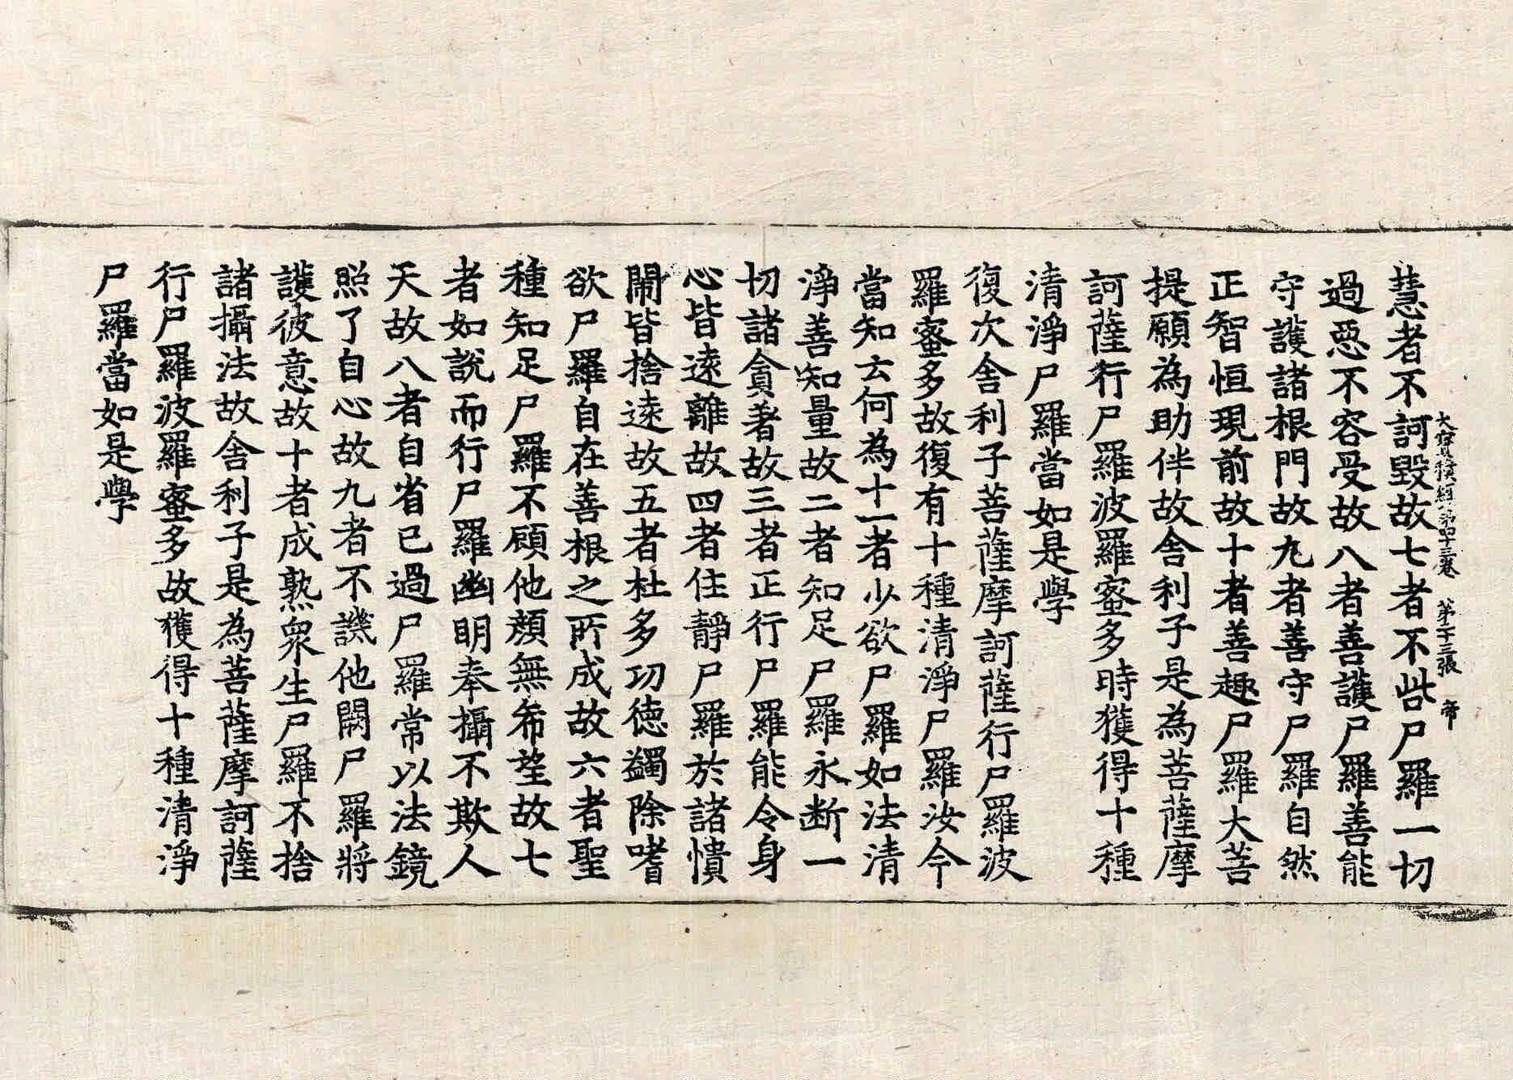 大寶積經第四十三卷 第二十三張 帝
慧者不訶毀故七者不呰尸羅一切
過惡不容受故八者善護尸羅善能
守護諸根門故九者善守尸羅自然
正智恒現前故十者善趣尸羅大菩
提願為助伴故舍利子是為菩薩摩
訶薩行尸羅波羅蜜多時獲得十種
清淨尸羅當如是學
復次舍利子菩薩摩訶薩行尸羅波
羅蜜多故復有十種清淨尸羅汝今
當知云何為十一者少欲尸羅如法清
淨善知量故二者知足尸羅永断一
切諸貪著故三者正行尸羅能令身
心皆遠離故四者住靜尸羅於諸憒
閙皆捨遠故五者杜多功德蠲除嗜
欲尸羅自在善根之所成故六者聖
種知足尸羅不顧他顏無希望故七
者如說而行尸羅幽明奉攝不欺人
天故八者自省己過尸羅常以法鏡
照了自心故九者不譏他闕尸羅將
護彼意故十者成熟衆生尸羅不捨
諸攝法故舍利子是為菩薩摩訶薩
行尸羅波羅蜜多故獲得十種清淨
尸羅當如是學